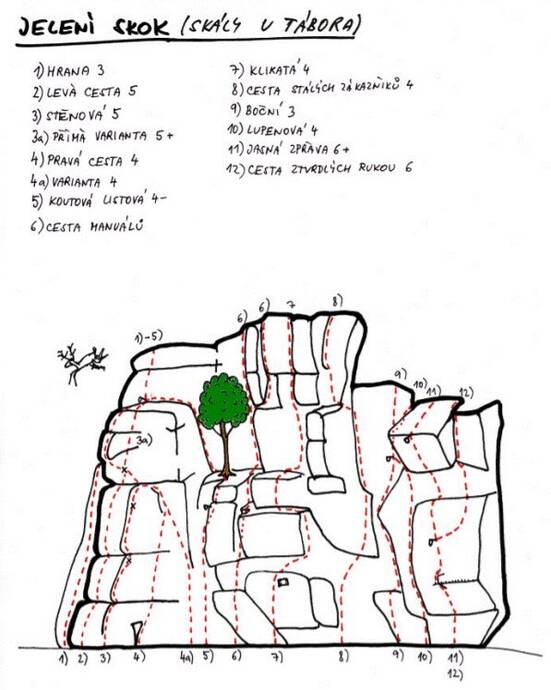 JELENÍ SKOK (SKÁLY U TÁBORA)
1) HRANA 3
2) LEVÁ CESTA 5
3) STĚNOVÁ 5
3a) PŘÍMÁ VARIANTA 5+
4) PRAVÁ CESTA 4
4a) VARIANTA 4
5) KOUTOVÁ LISTOVÁ 4-
6) CESTA MANUÁLŮ
7) KLIKATÁ 4
8) CESTA STÁLÝCH ZÁKAZNÍKŮ 4
9) BOČNÍ 3
10) LUPENOVÁ 4
11) JASNÁ ZPRÁVA 6+
12) CESTA ZTVRDLÝCH RUKOU 6
1)-5)
6)
6)
7
8)
9)
10)
11)
12)
3a)
1)
2)
3)
4)
4a)
5)
6)
7)
8)
9)
10)
11)
12)